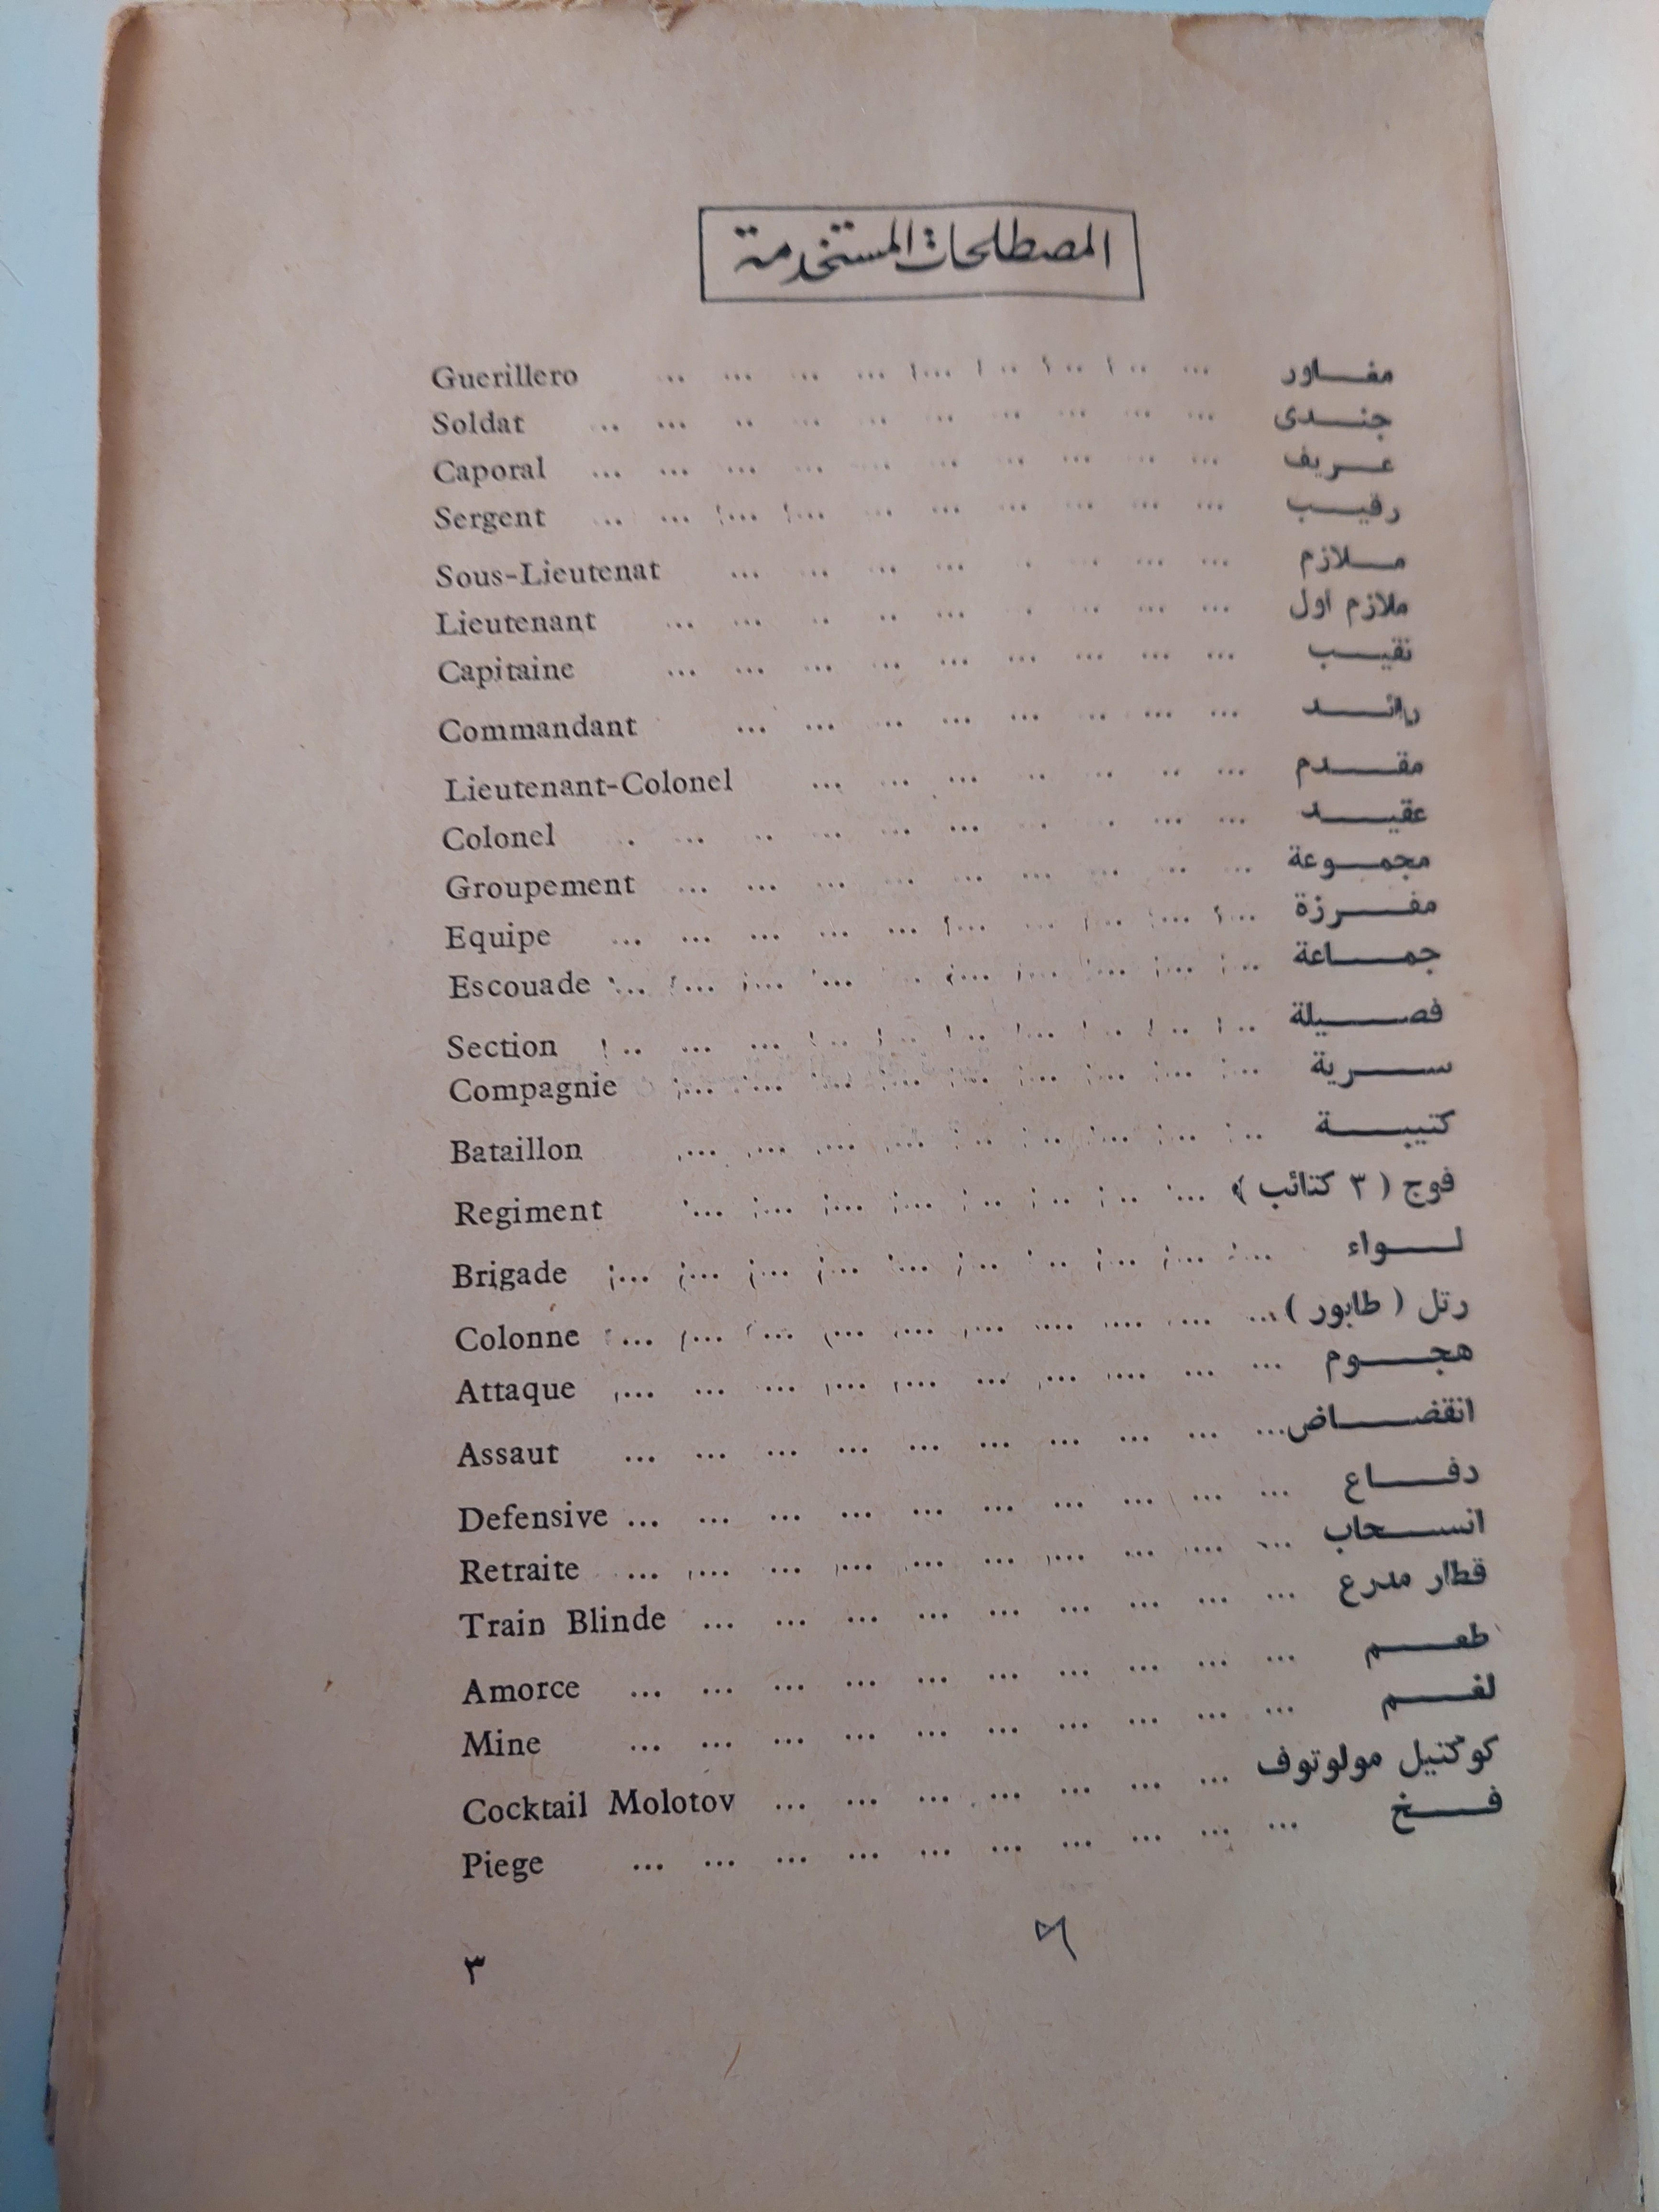 المصطلحات المستخدمة
Guerillero ... ... ... ... ... ... ... ... ... مغاور
Soldat ... ... ... ... ... ... ... ... ... ... جندى
Caporal ... ... ... ... ... ... ... ... ... ... عريف
Sergent ... ... ... ... ... ... ... ... ... ... رقيب
Sous-Lieutenat ... ... ... ... ... ... ... ... ملازم
Lieutenant ... ... ... ... ... ... ... ... ... ملازم اول
Capitaine ... ... ... ... ... ... ... ... ... نقيب
Commandant ... ... ... ... ... ... ... ... رائد
Lieutenant-Colonel ... ... ... ... ... ... ... مقدم
Colonel ... ... ... ... ... ... ... ... ... ... عقيد
Groupement ... ... ... ... ... ... ... ... ... مجموعة
Equipe ... ... ... ... ... ... ... ... ... ... مفرزة
Escouade ... ... ... ... ... ... ... ... ... ... جماعة
Section ... ... ... ... ... ... ... ... ... ... فصيلة
Compagnie ... ... ... ... ... ... ... ... ... سرية
Bataillon ... ... ... ... ... ... ... ... ... كتيبة
Regiment ... ... ... ... ... ... ... ... فوج ( ٣ كتائب )
Brigade ... ... ... ... ... ... ... ... ... ... لواء
Colonne ... ... ... ... ... ... ... ... ... ... رتل ( طابور )
Attaque ... ... ... ... ... ... ... ... ... ... هجوم
Assaut ... ... ... ... ... ... ... ... ... ... انقضاض
Defensive ... ... ... ... ... ... ... ... ... ... دفاع
Retraite ... ... ... ... ... ... ... ... ... ... انسحاب
Train Blinde ... ... ... ... ... ... ... ... ... قطار مدرع
Amorce ... ... ... ... ... ... ... ... ... ... طعم
Mine ... ... ... ... ... ... ... ... ... ... لغم
Cocktail Molotov ... ... ... ... ... ... ... كوكتيل مولوتوف
Piege ... ... ... ... ... ... ... ... ... ... فخ
٣